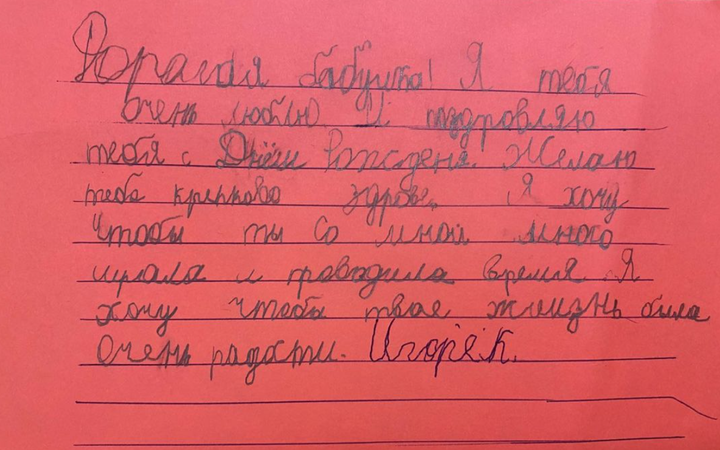 Дорагая бабушка! Я тебя
очень люблю. И поздровляю
тебя с Днём Рождения. Желаю
тебе крепково здров. Я хочу
Чтобы ты со мной много
играла и праводила время. Я
хочу чтобы твае жизнь была
Очень радости. Игорёк.